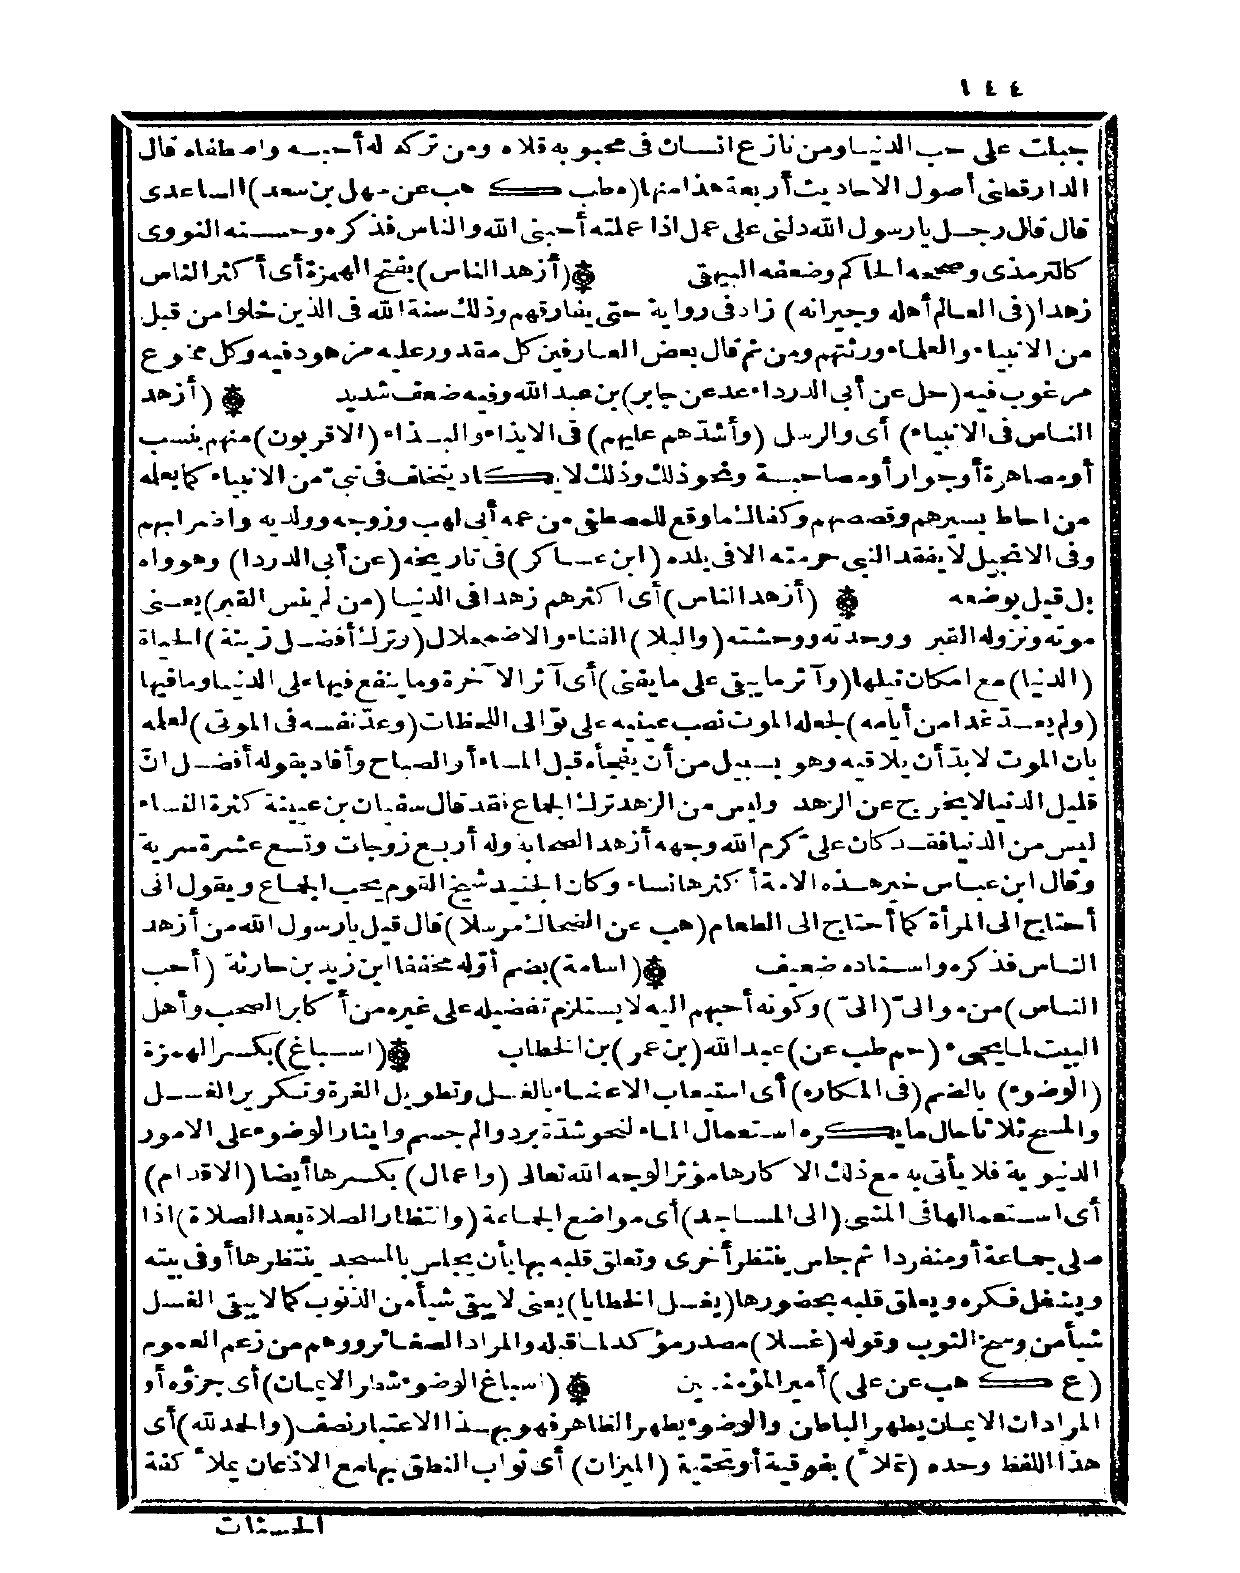 ١٤٤
جبلت على حب الدنيا ومن نازع انسان فى محبوبه قلاه ومن تركه له أحبه واصطفاه قال
الدارقطنى أصول الاحاديث أربعة هذا منها (ه طب ك هب عن سهل بن سعد) الساعدى
قال قال رجل يارسول الله دلنى على عمل اذا عملته أحبنى الله والناس فذكره وحسنه النووى
كالترمذى وصححه الحاكم وضعفه البيهقى ۞ (أزهد الناس) بفتح الهمزة أى أكثر الناس
زهدا (فى العالم أهله وجيرانه) زاد فى رواية حتى يفارقهم وذلك سنة الله فى الذين خلوا من قبل
من الانبياء والعلماء ورثتهم ومن ثم قال بعض العارفين كل مقدور عليه مزهود فيه وكل ممنوع
مرغوب فيه (حل عن أبى الدرداء عد عن جابر) بن عبد الله وفيه ضعف شديد ۞ (أزهد
الناس فى الانبياء) أى والرسل (وأشدّهم عليهم) فى الايذاء والبذاء (الاقربون) منهم بنسب
أو مصاهرة أو جوار أو مصاحبة ونحو ذلك وذلك لا يكاد يتخلف فى نبىّ من الانبياء كما يعلمه
من احاط بسيرهم وقصصهم وكفاك ما وقع للمصطفى من عمه أبى لهب وزوجه وولديه واضرابهم
وفى الانجيل لا يفقد النبى حرمته الا فى بلده (ابن عساكر) فى تاريخه (عن أبى الدردا) وهو واه
بل قيل بوضعه ۞ (أزهد الناس) أى اكثرهم زهدا فى الدنيا (من لم ينس القبر) يعنى
موته ونزوله القبر ووحدته ووحشته (والبلا) الفناء والاضمحلال (وترك أفضل زينة) الحياة
(الدنيا) مع امكان نيلها (وآثر ما يبقى على ما يفنى) أى آثر الآخرة وما ينفع فيها على الدنيا وما فيها
(ولم يعدّ غدا من أيامه) لجعله الموت نصب عينيه على توالى اللحظات (وعدّ نفسه فى الموتى) لعلمه
بان الموت لا بدّ أن يلاقيه وهو بسبيل من أن يفجأه قبل المساء أو الصباح وأفاد بقوله أفضل انّ
قليل الدنيا لا يخرج عن الزهد وليس من الزهد ترك الجماع فقد قال سفيان بن عيينة كثرة النساء
ليس من الدنيا فقد كان علىّ كرم الله وجهه أزهد الصحابة وله أربع زوجات وتسع عشرة سرية
وقال ابن عباس خير هذه الامة أكثرها نساء وكان الجنيد شيخ القوم يحب الجماع ويقول انى
أحتاج الى المرأة كما أحتاج الى الطعام (هب عن الضحاك مرسلا) قال قيل يارسول الله من أزهد
الناس فذكره واسناده ضعيف ۞ (اسامة) بضم أوّله مخففا ابن زيد بن حارثة (أحب
الناس) من موالىّ (الىّ) وكونه أحبهم اليه لا يستلزم تفضيله على غيره من أكابر الصحب وأهل
البيت لما يجىء (حم طب عن) عبد الله (بن عمر) بن الخطاب ۞ (اسباغ) بكسر الهمزة
(الوضوء) بالضم (فى المكاره) أى استيعاب الاعضاء بالغسل وتطويل الغرة وتكرير الغسل
والمسح ثلاثا حال ما يكره استعمال الماء لنحو شدة برد وألم جسم وايثار الوضوء على الامور
الدنيوية فلا يأتى به مع ذلك الا كارها مؤثرا لوجه الله تعالى (واعمال) بكسرها أيضا (الاقدام)
أى استعمالها فى المشى (الى المساجد) أى مواضع الجماعة (وانتظار الصلاة بعد الصلاة) اذا
صلى جماعة أو منفردا ثم جلس ينتظر أخرى وتعلق قلبه بها بأن يجلس بالمسجد ينتظرها أو فى بيته
ويشغل فكره ويعلق قلبه بحضورها (يغسل الخطايا) يعنى لا يبقى شيأ من الذنوب كما لا يبقى الغسل
شيأ من وسخ الثوب وقوله (غسلا) مصدر مؤكد لما قبله والمراد الصغائر ووهم من زعم العموم
(ع ك هب عن على) أمير المؤمنين ۞ (اسباغ الوضوء شطر الايمان) أى جزؤه أو
المراد ان الايمان يطهر الباطن والوضوء يطهر الظاهر فهو بهذا الاعتبار نصف (والحمد لله) أى
هذا اللفظ وحده (تملأ) بفوقية أو تحتية (الميزان) أى ثواب النطق بها مع الاذعان يملأ كفة
الحسنات